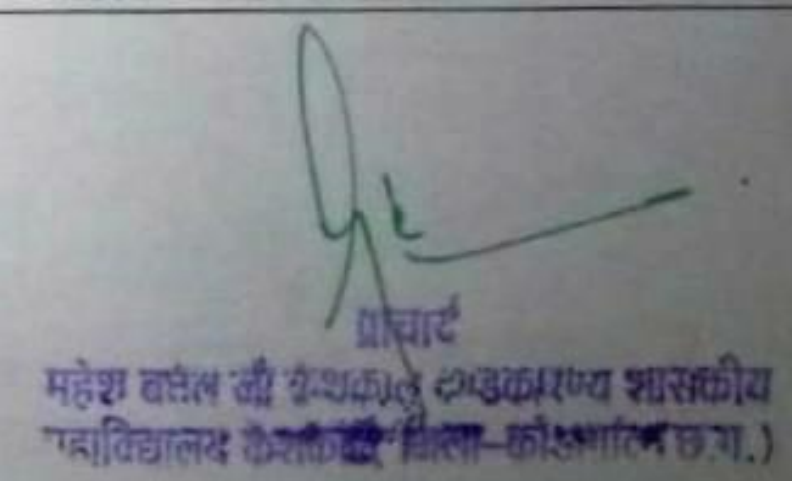 प्राचार्य
महेश बघेल जी दण्डकारण्य शासकीय
महाविद्यालय केशकाल जिला-कोण्डागांव छ.ग.)